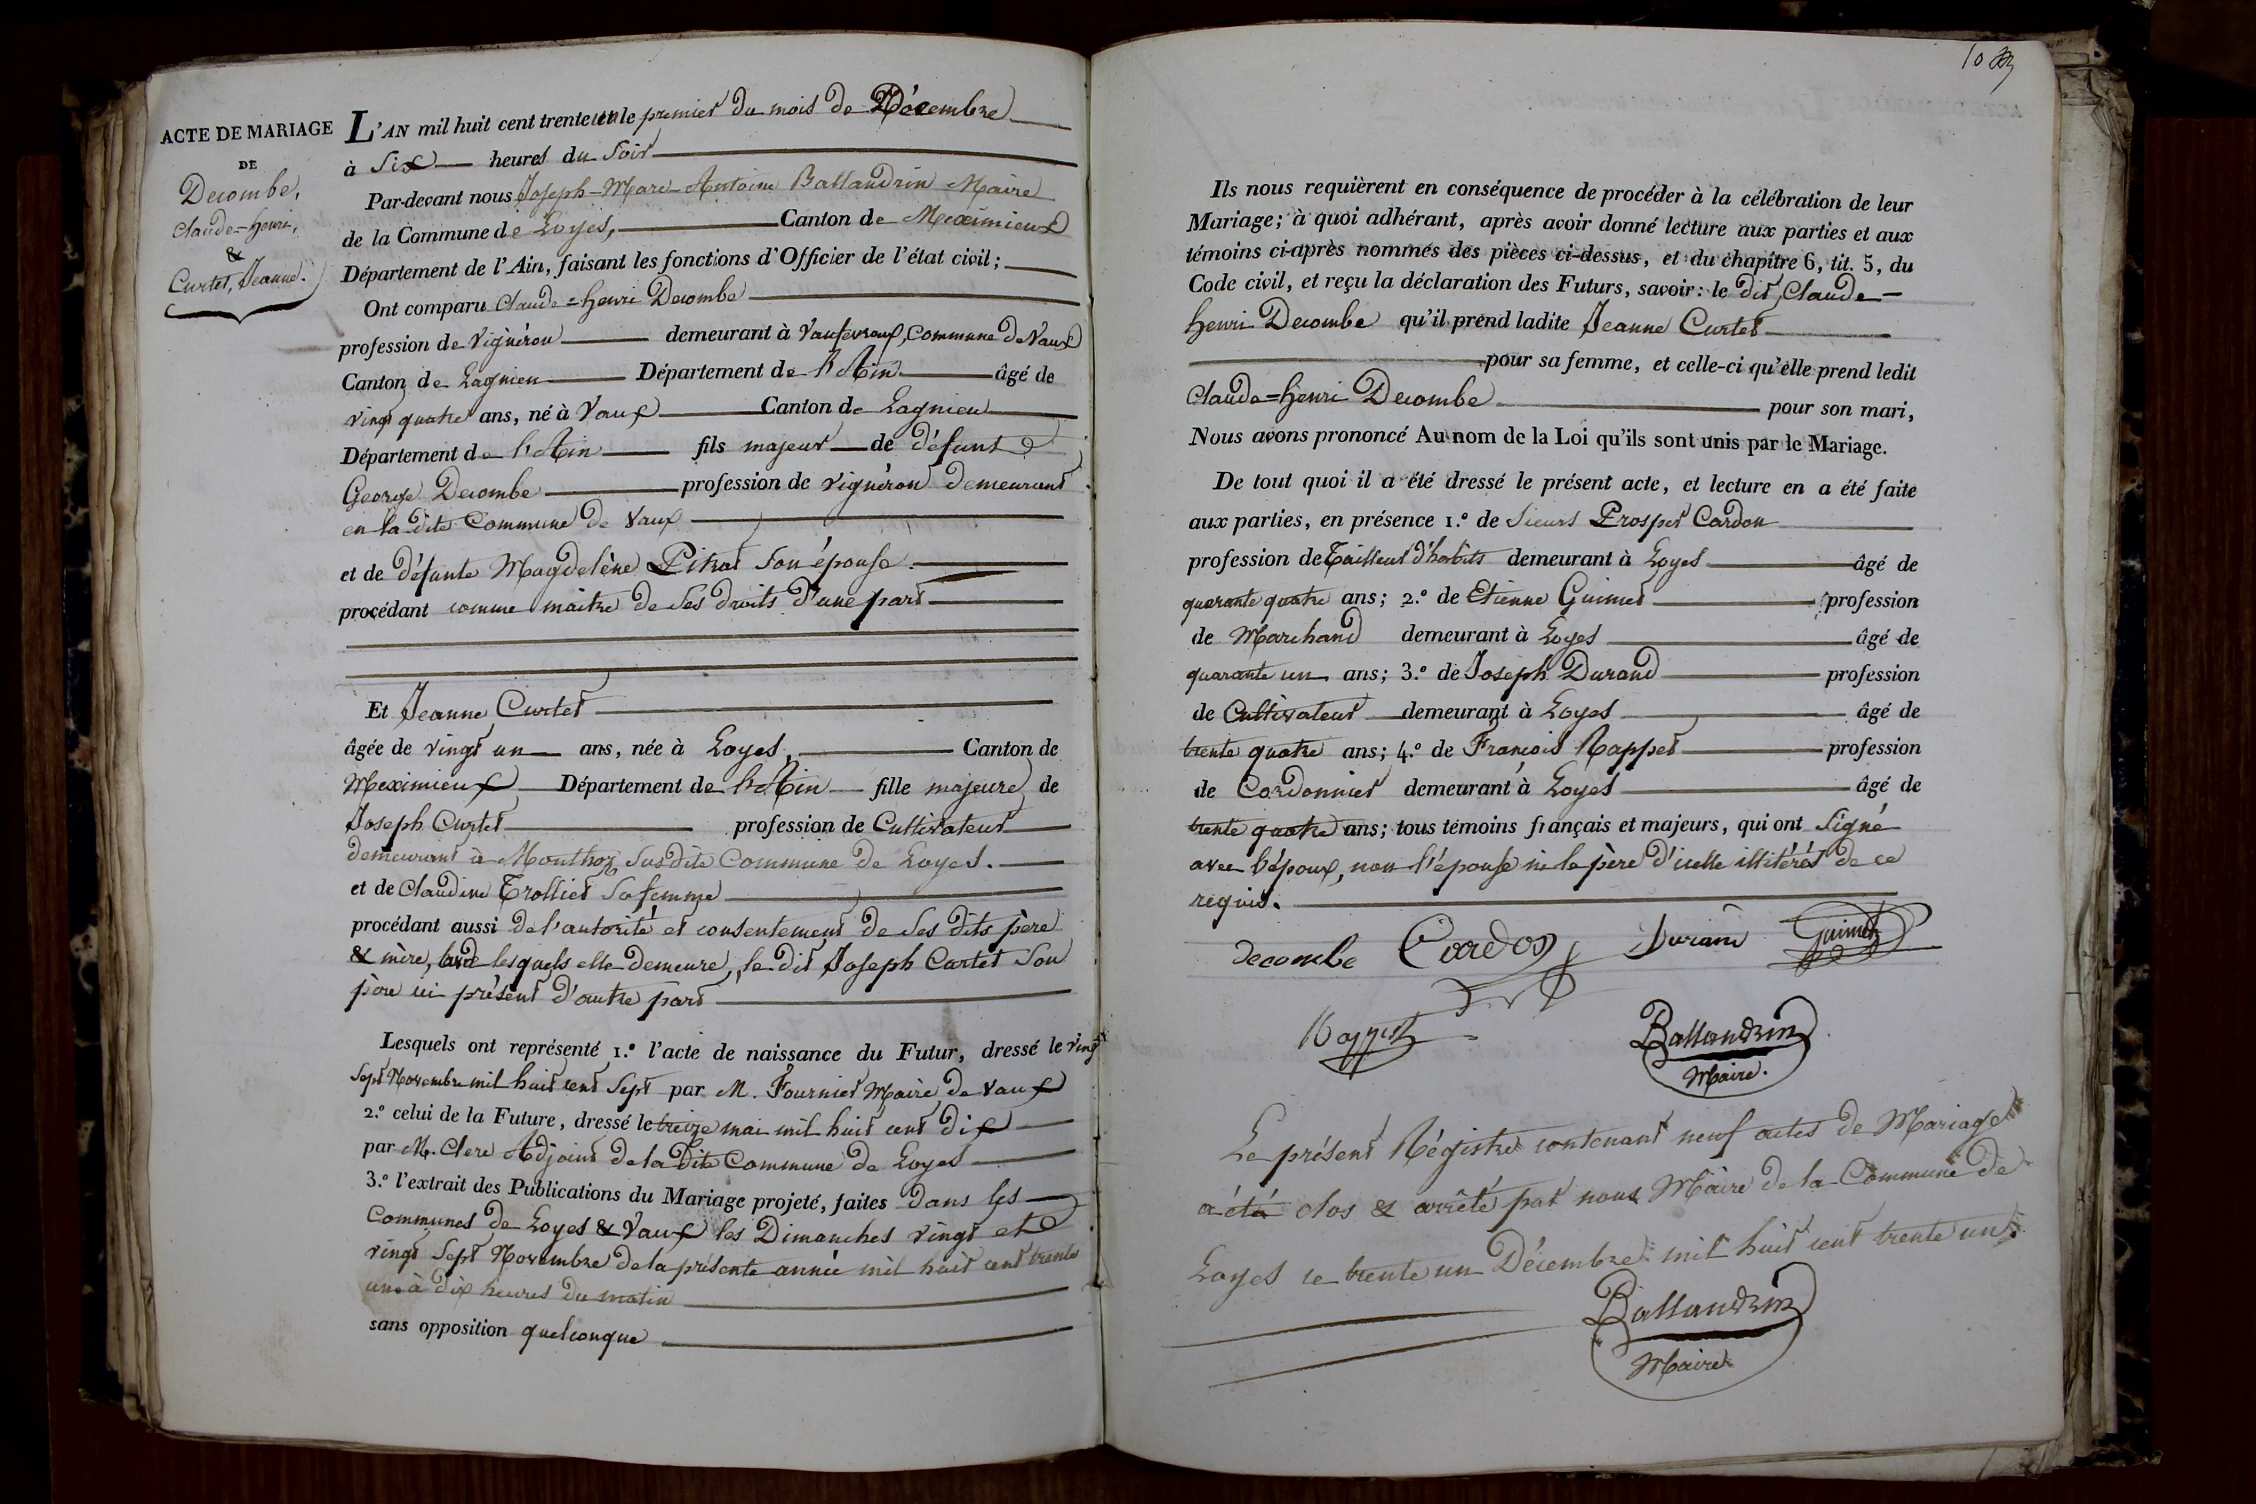 ACTE DE MARIAGE
DE
Decombe,
Claude=henri,
&
Curtet, Jeanne.
L'AN mil huit cent trente un le premier du mois de Décembre
à Six heures du Soir
Par-devant nous Joseph-Marc-Antoine Ballandrin Maire
de la Commune de Loyes, Canton de Meximieux
Département de l'Ain, faisant les fonctions d'Officier de l'état civil;
Ont comparu Claude=henri Decombe
profession de Vignéron demeurant à Vaufevroux, Commune de Vaux
Canton de Lagnieu Département de l'Ain âgé de
vingt quatre ans, né à Vaux Canton de Lagnieu
Département de l'Ain fils majeur de défunt
George Decombe profession de vignéron demeurant
en la dite Commune de Vaux
et de défunte Magdelène Pitrat Son épouse.
procédant comme maître de Ses droits d'une part
Et Jeanne Curtet
âgée de vingt un ans, née à Loyes, Canton de
Meximieux Département de l'Ain fille majeure de
Joseph Curtet profession de Cultivateur
demeurant à Monthoz Susdite Commune de Loyes.
et de Claudine Trollier Sa femme
procédant aussi de l'autorité et consentement de Ses dits père
& mère, avec lesquels elle demeure, le dit Joseph Curtet Son
père ici présent d'autre part
Lesquels ont représenté 1.º l'acte de naissance du Futur, dressé le vingt
Sept Novembre mil huit cent Sept par M. Fournier Maire de Vaux
2.º celui de la Future, dressé le treize mai mil huit cent dix
par M. Clerc Adjoint de la dite Commune de Loyes
3.º l'extrait des Publications du Mariage projeté, faites dans les
Communes de Loyes & Vaux les Dimanches vingt et
vingt Sept Novembre de la présente année mil huit cent trente
un à dix heures du matin
sans opposition quelconque
10
Ils nous requièrent en conséquence de procéder à la célébration de leur
Mariage; à quoi adhérant, après avoir donné lecture aux parties et aux
témoins ci-après nommés des pièces ci-dessus, et du chapitre 6, tit. 5, du
Code civil, et reçu la déclaration des Futurs, savoir: le dit Claude-
henri Decombe qu'il prend ladite Jeanne Curtet
pour sa femme, et celle-ci qu'elle prend ledit
Claude=henri Decombe pour son mari,
Nous avons prononcé Au nom de la Loi qu'ils sont unis par le Mariage.
De tout quoi il a été dressé le présent acte, et lecture en a été faite
aux parties, en présence 1.º de Sieurs Prosper Cardon
profession de Tailleur d'habits demeurant à Loyes âgé de
quarante quatre ans; 2.º de Etienne Guimet profession
de Marchand demeurant à Loyes âgé de
quarante un ans; 3.º de Joseph Durand profession
de Cultivateur demeurant à Loyes âgé de
trente quatre ans; 4.º de François Rappet profession
de Cordonnier demeurant à Loyes âgé de
trente quatre ans; tous témoins français et majeurs, qui ont Signé
avec l'époux, non l'épouse ni le père d'icelle illitérés de ce
requis.
Decombe Cardon Durand Guimet
Rappet Ballandrin
Maire.
Le présent Régistre contenant neuf actes de Mariage
a été clos & arrêté par nous Maire de la Commune de
Loyes ce trente un Décembre mil huit cent trente un.
Ballandrin
Maire